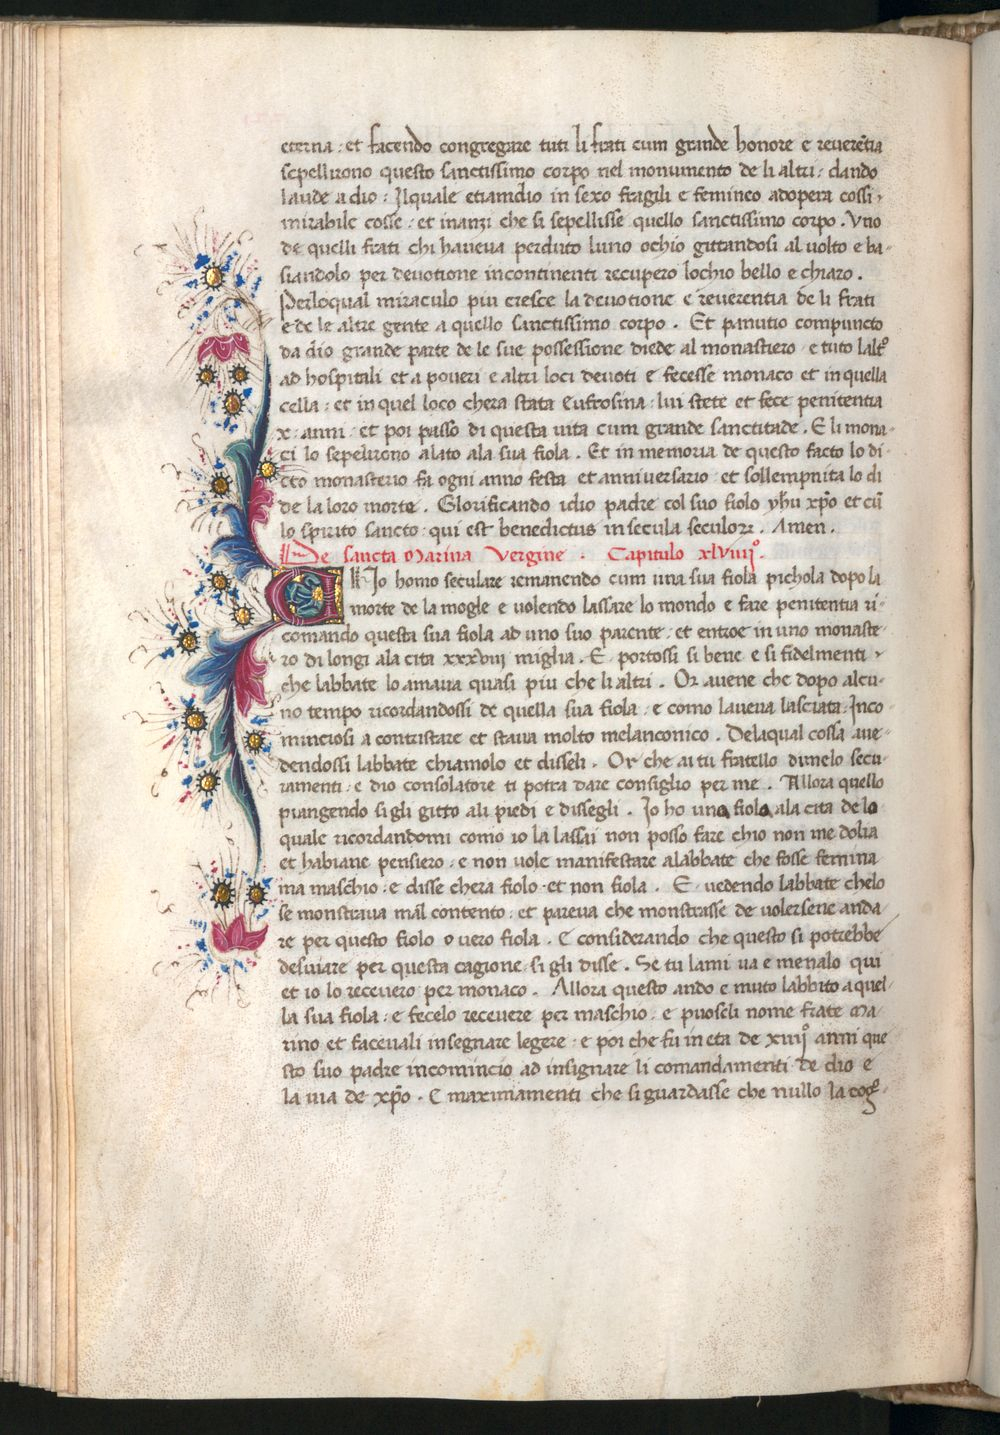 eterna : et facendo congregare tuti li frati cum grande honore e reverẽtia
sepellirono questo sanctissimo corpo nel monumento de li altri : dando
laude a dio : Ilquale etiamdio in sexo fragili e femineo adopera cossi
mirabile cosse : et inanzi che si sepellisse quello sanctissimo corpo . Uno
de quelli frati chi haveva perduto luno ochio gittandosi al volto e ba-
siandolo per devotione incontinenti recupero lochio bello e chiaro .
Perloqual miraculo piu cresce la devotione e reverentia de li frati
e de le altre gente a quello sanctissimo corpo . Et panutio compuncto
da dio grande parte de le sue possessione diede al monastiero e tuto laltº
ad hospitali et a poveri e altri loci devoti e fecesse monaco et in quella
cella : et in quel loco chera stata Eufrosina : lui stete et fece penitentia
x : anni : et poi passo di questa vita cum grande sanctitade . E li mona-
ci lo sepelirono alato ala sua fiola . Et in memoria de questo facto lo di-
cto monasterio fa ogni anno festa et anniversario : et sollempnita lo di
de la loro morte . Glorificando idio padre col suo fiolo yhu xp̃o et cũ
lo spirito sancto : qui est benedictus in secula seculorꝝ . Amen .
De sancta Marina Vergine . Capitulo xlviiijº .
U Nio homo seculare remanendo cum una sua fiola pichola dopo la
morte de la mogle e volendo lassare lo mondo e fare penitentia ri-
comando questa sua fiola ad uno suo parente : et entroe in uno monaste-
ro di longi ala cita xxxviii miglia . E portossi si bene e si fidelmenti
che labbate lo amava quasi piu che li altri . Or avene che dopo alcu-
no tempo ricordandossi de quella sua fiola : e como laveva lasciata : Inco-
minciosi a contristare et stava molto melanconico . Delaqual cossa ave-
dendossi labbate chiamolo et disseli . Or che ai tu fratello dimelo secu-
ramenti : e dio consolatore ti potra dare consiglio per me . Allora quello
piangendo si gli gitto ali piedi e dissegli . Io ho uno fiolo ala cita de lo
quale ricordandomi como io la lassai non posso fare chio non me dolia
et habiane pensiero : e non vole manifestare alabbate che fosse femina
ma maschio : e disse chera fiolo et non fiola . E vedendo labbate chelo
se monstrava mal contento : et pareva che monstrasse de volersene anda-
re per questo fiolo o vero fiola . E considerando che questo si potrebbe
desviare per questa cagione si gli disse . Se tu lami va e menalo qui
et io lo recevero per monaco . Allora questo ando e muto labbito a quel-
la sua fiola : e fecelo recevere per maschio : e puoseli nome frate Ma-
rino et facevali insegnare legere : e poi che fu in eta de xiiijº anni que-
sto suo padre incomincio ad insignare li comandamenti de dio e
la via de xp̃o . E maximamenti che si guardasse che nullo la cog-